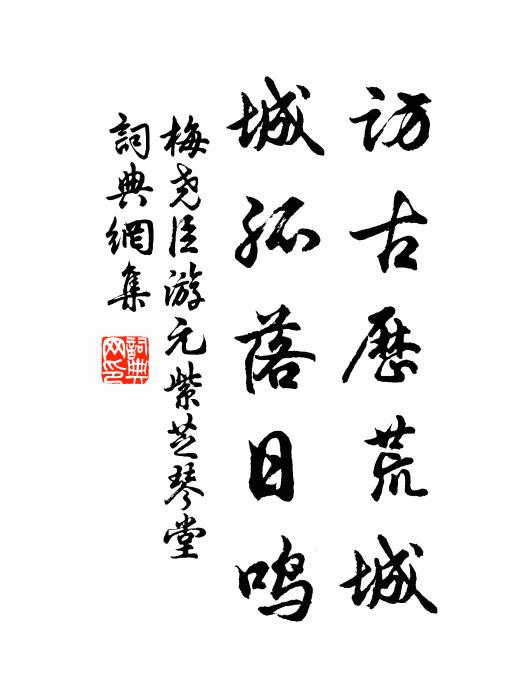 访古歷荒城
城孤落日鸣
梅尧臣游元紫芝琴堂
詞典網集
詞典网印